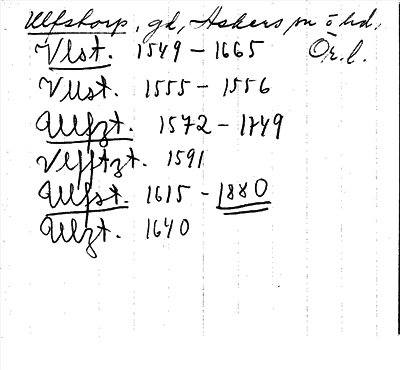 Ulfstorp, gd, Askers sn o hd.
Vlst. 1549 – 1665 Ör. l.
Vllst. 1555 – 1556
Ulfzt. 1572 – 1749
Vlfftzt. 1591
Ulfst. 1615 – 1880
Ulzt. 1640